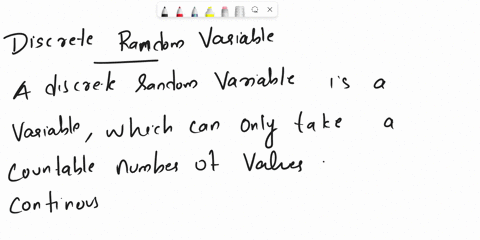 Discrete Random Variable
A discrete random Variable is a
Variable, which can only take a
Countable number of Values .
Continous